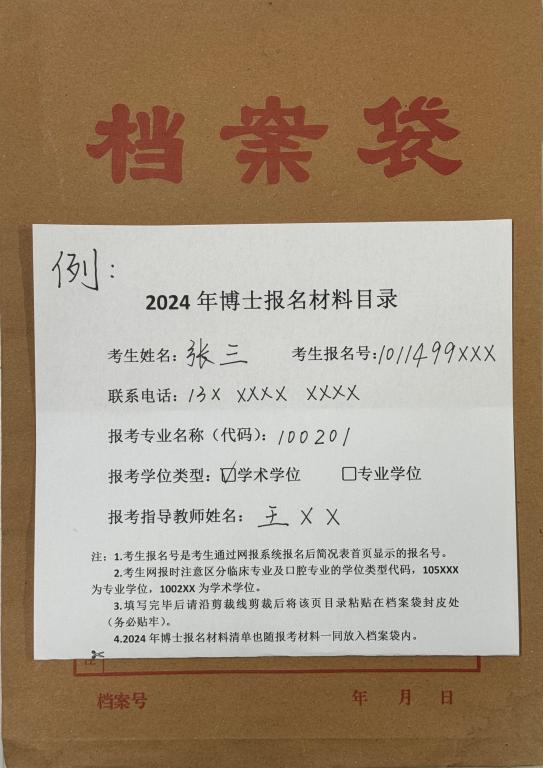 档案袋
例：
2024 年博士报名材料目录
考生姓名：张三 考生报名号：1011499XXX
联系电话：13X XXXX XXXX
报考专业名称（代码）：100201
报考学位类型：☑学术学位 □专业学位
报考指导教师姓名：王XX
注：1.考生报名号是考生通过网报系统报名后简况表首页显示的报名号。
2.考生网报时注意区分临床专业及口腔专业的学位类型代码，105XXX
为专业学位，1002XX 为学术学位。
3.填写完毕后请沿剪裁线剪裁后将该页目录粘贴在档案袋封皮处
（务必贴牢）。
4.2024 年博士报名材料清单也随报考材料一同放入档案袋内。
档案号 年 月 日